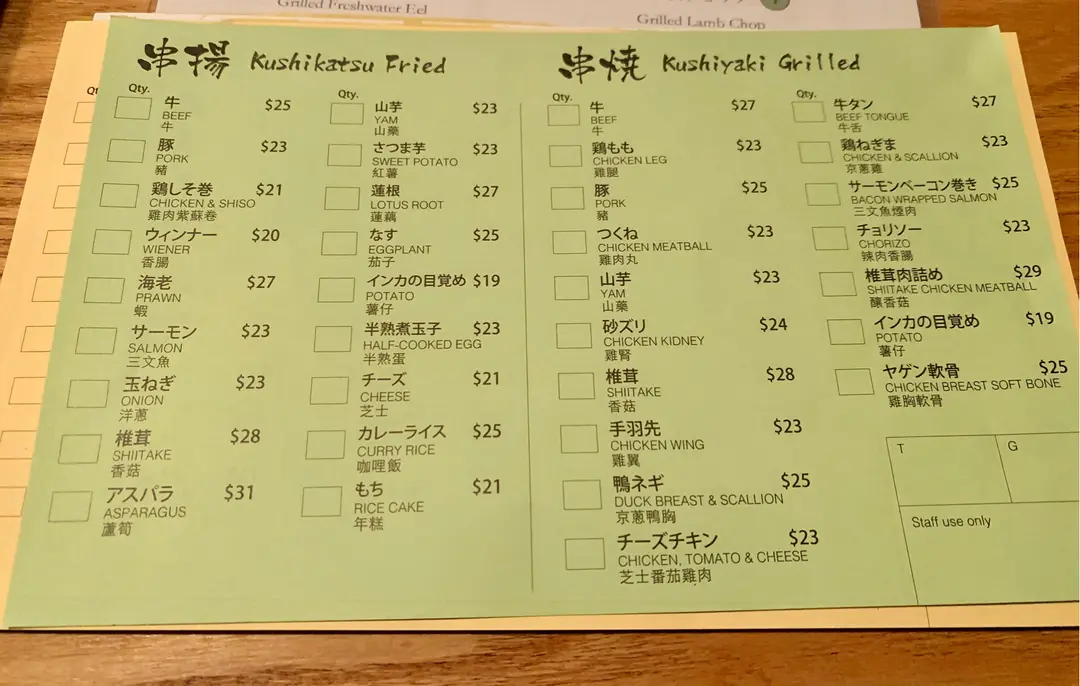 Grilled Freshwater Eel
Grilled Lamb Chop
串揚 Kushikatsu Fried
Qty.
牛 $25
BEEF
牛
豚 $23
PORK
豬
鶏しそ巻 $21
CHICKEN & SHISO
雞肉紫蘇卷
ウィンナー $20
WIENER
香腸
海老 $27
PRAWN
蝦
サーモン $23
SALMON
三文魚
玉ねぎ $23
ONION
洋蔥
椎茸 $28
SHIITAKE
香菇
アスパラ $31
ASPARAGUS
蘆筍
Qty.
山芋 $23
YAM
山藥
さつま芋 $23
SWEET POTATO
紅薯
蓮根 $27
LOTUS ROOT
蓮藕
なす $25
EGGPLANT
茄子
インカの目覚め $19
POTATO
薯仔
半熟煮玉子 $23
HALF-COOKED EGG
半熟蛋
チーズ $21
CHEESE
芝士
カレーライス $25
CURRY RICE
咖哩飯
もち $21
RICE CAKE
年糕
串焼 Kushiyaki Grilled
Qty.
牛 $27
BEEF
牛
鶏もも $23
CHICKEN LEG
雞腿
豚 $25
PORK
豬
つくね $23
CHICKEN MEATBALL
雞肉丸
山芋 $23
YAM
山藥
砂ズリ $24
CHICKEN KIDNEY
雞腎
椎茸 $28
SHIITAKE
香菇
手羽先 $23
CHICKEN WING
雞翼
鴨ネギ $25
DUCK BREAST & SCALLION
京蔥鴨胸
チーズチキン $23
CHICKEN, TOMATO & CHEESE
芝士番茄雞肉
Qty.
牛タン $27
BEEF TONGUE
牛舌
鶏ねぎま $23
CHICKEN & SCALLION
京蔥雞
サーモンベーコン巻き $25
BACON WRAPPED SALMON
三文魚煙肉
チョリソー $23
CHORIZO
辣肉香腸
椎茸肉詰め $29
SHIITAKE CHICKEN MEATBALL
釀香菇
インカの目覚め $19
POTATO
薯仔
ヤゲン軟骨 $25
CHICKEN BREAST SOFT BONE
雞胸軟骨
T G
Staff use only